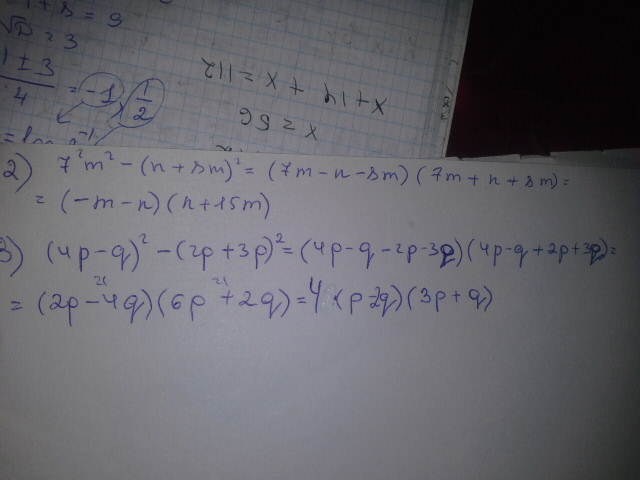 1 + 8 = 9
√D = 3
1 ± 3 / 4 = -1, 1/2
x + 14 + x = 112
x = 56
2) 7²m² - (n + 8m)² = (7m - n - 8m) (7m + n + 8m) =
= (-m - n) (n + 15m)
3) (4p - q)² - (2p + 3p)² = (4p - q - 2p - 3q) (4p - q + 2p + 3q) =
= (2p - 4q) (6p + 2q) = 4 · (p - 2q) (3p + q)